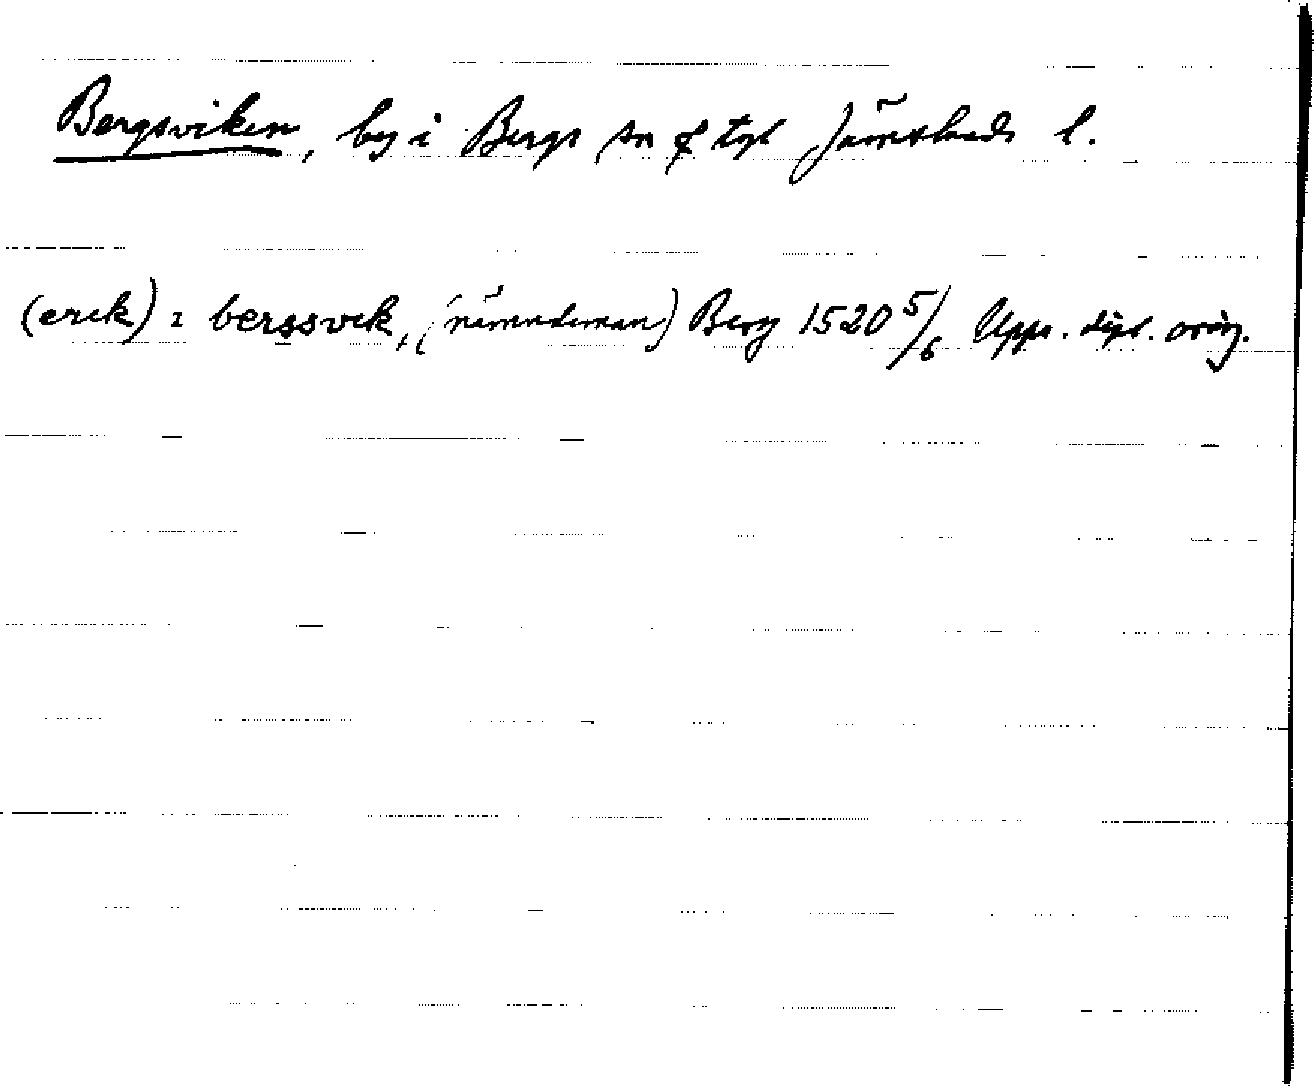 Bergsviken, by i Bergs sn o tgl Jämtlands l.
(erik) i berssvik, (nämndeman) Berg 1520 5/6 Upps. dipl. orig.